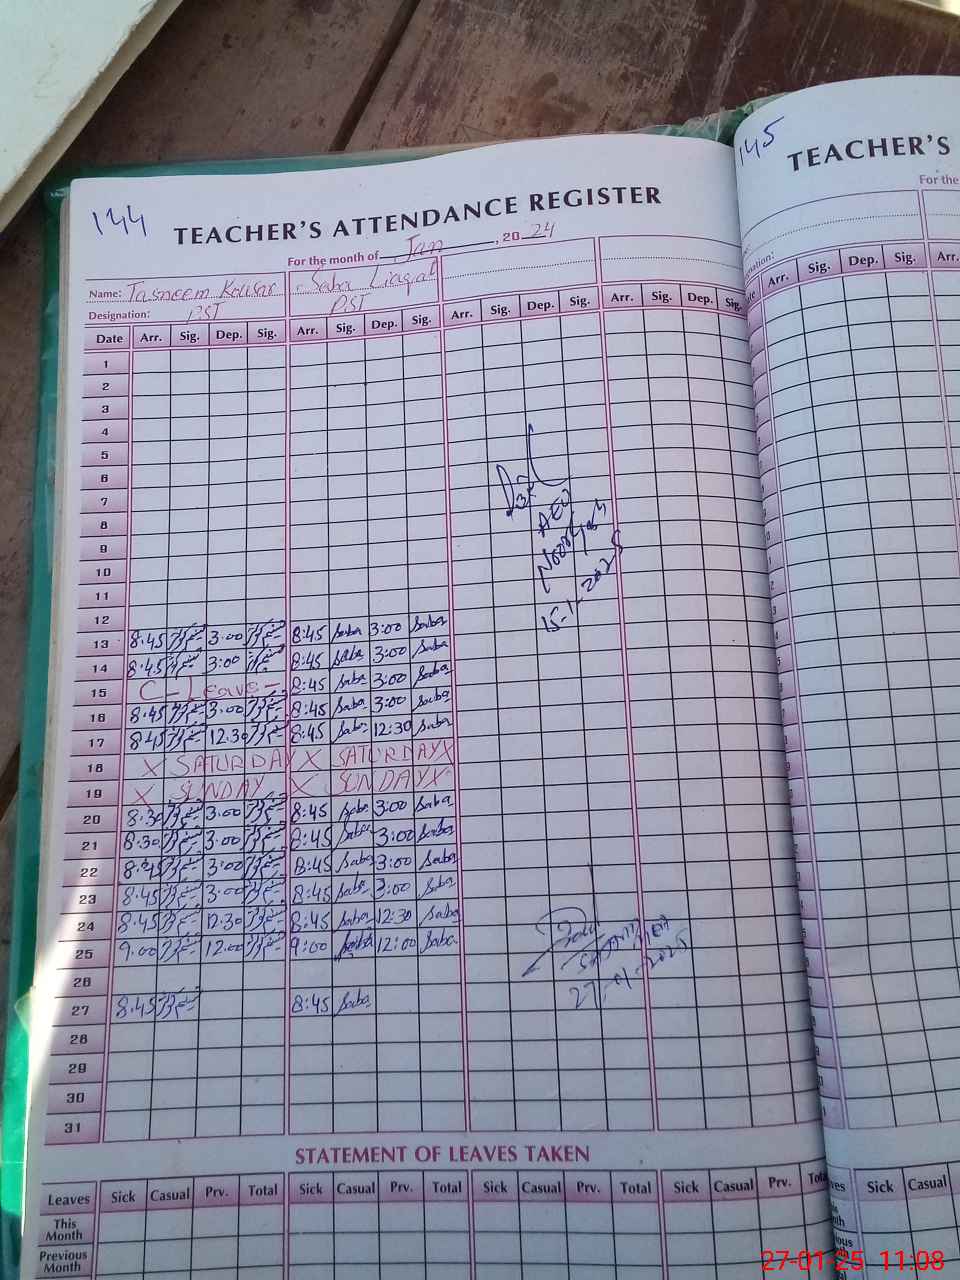 144
TEACHER'S ATTENDANCE REGISTER
For the month of Jan, 2024
Name: Tasneem Kousar Saba Liaqat
Designation: PST PST
Date Arr. Sig. Dep. Sig. Arr. Sig. Dep. Sig. Arr. Sig. Dep. Sig. Arr. Sig. Dep. Sig.
1
2
3
4
5
6
7
8
9
10
11
12
13 8.45 3.00 8:45 Saba 3:00 Saba
14 8.45 3:00 8:45 Saba 3:00 Saba
15 C - Leave - 8:45 Saba 3:00 Saba
16 8.45 3.00 8:45 Saba 3:00 Saba
17 8.45 12.30 8:45 Saba 12:30 Saba
18 X SATURDAY X SATURDAY X
19 X SUNDAY X SUNDAY X
20 8.30 3.00 8:45 Saba 3:00 Saba
21 8.30 3.00 8:45 Saba 3:00 Saba
22 8.45 3.00 8:45 Saba 3:00 Saba
23 8.45 3.00 8:45 Saba 3:00 Saba
24 8.45 12.30 8:45 Saba 12:30 Saba
25 9.00 12.00 9:00 Saba 12:00 Saba
26
27 8.45 8:45 Saba
28
29
30
31
AEO
15-1-2025
27-01-2025
STATEMENT OF LEAVES TAKEN
Leaves Sick Casual Prv. Total Sick Casual Prv. Total Sick Casual Prv. Total Sick Casual Prv. Total
This Month
Previous Month
145
TEACHER'S
For the
Arr. Sig. Dep. Sig. Arr.
Sick Casual
27-01-25 11:08